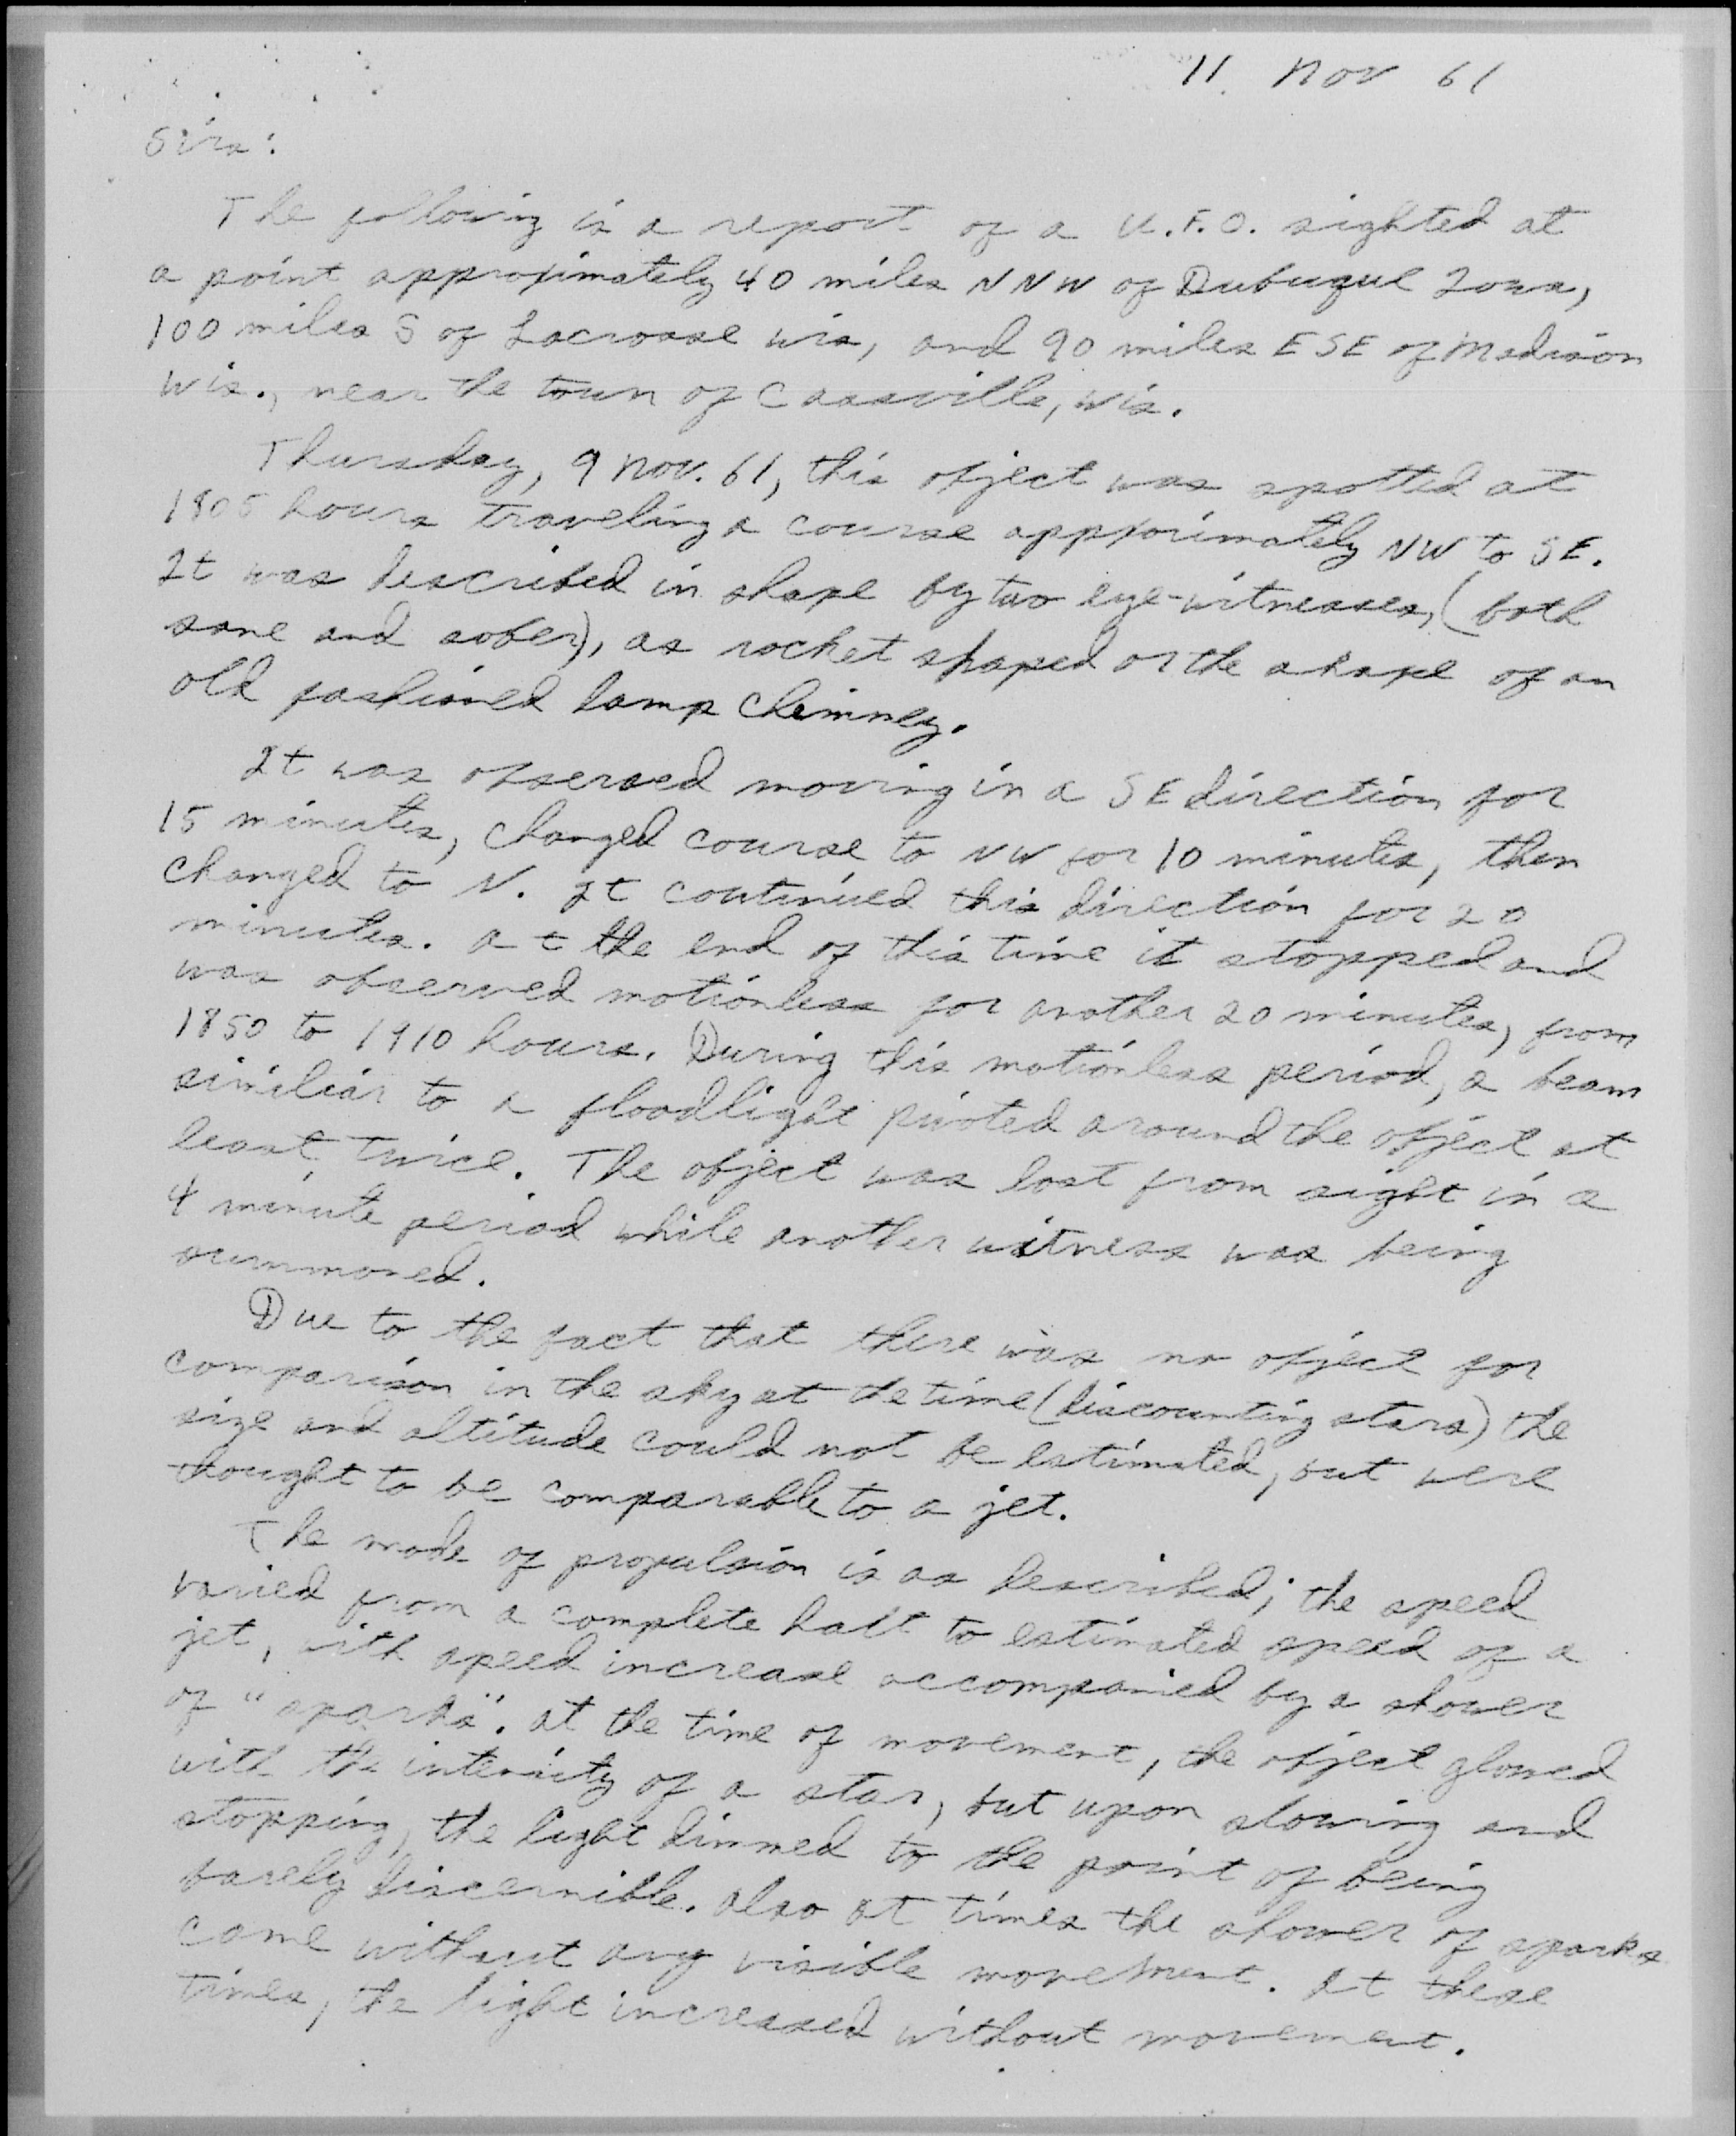 11 Nov 61
Sirs:
The following is a report of a U.F.O. sighted at
a point approximately 40 miles NNW of Dubuque Iowa,
100 miles S of Lacrosse Wis, and 90 miles ESE of Madison
Wis., near the town of Cassville, Wis.
Thursday, 9 Nov. 61, this object was spotted at
1805 hours traveling a course approximately NW to SE.
It was described in shape by two eye-witnesses, (both
sane and sober), as rocket shaped or the shape of an
old fashioned lamp chimney.
It was observed moving in a SE direction for
15 minutes, changed course to NW for 10 minutes, then
changed to N. It continued this direction for 20
minutes. At the end of this time it stopped and
was observed motionless for another 20 minutes, from
1850 to 1910 hours. During this motionless period, a beam
similiar to a floodlight pivoted around the object at
least twice. The object was lost from sight in a
4 minute period while another witness was being
summoned.
Due to the fact that there was no object for
comparison in the sky at the time (discounting stars) the
size and altitude could not be estimated, but were
thought to be comparable to a jet.
The mode of propulsion is as described; the speed
varied from a complete halt to estimated speed of a
jet, with speed increase accompanied by a shower
of "sparks". At the time of movement, the object glowed
with the intensity of a star, but upon slowing and
stopping, the light dimmed to the point of being
barely discernible. Also at times the shower of sparks
came without any visible movement. At these
times, the light increased without movement.